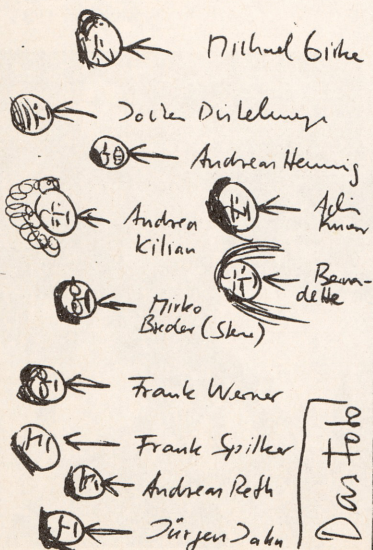 Michael Girke
Jochen Distelmeyer
Andreas Henning
Andrea
Kilian
Berna-
dette
Mirko
Breder
Frank Werner
Frank Spilker
Andreas Reth
Jürgen Jahn
Das Foto